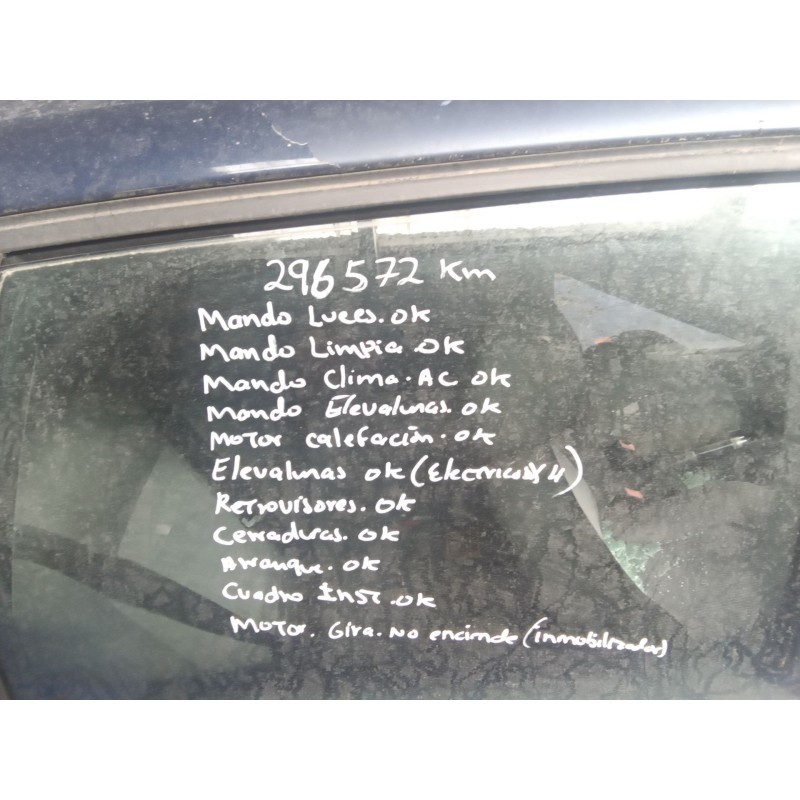 296572 Km
Mando Luces. OK
Mando Limpia OK
Mando Clima. AC OK
Mando Elevalunas. OK
Motor calefación. OK
Elevalunas OK (Electricos X4)
Retrovisores. OK
Cerraduras. OK
Arranque. OK
Cuadro Inst. OK
Motor. Gira. No enciende (inmobilizador)